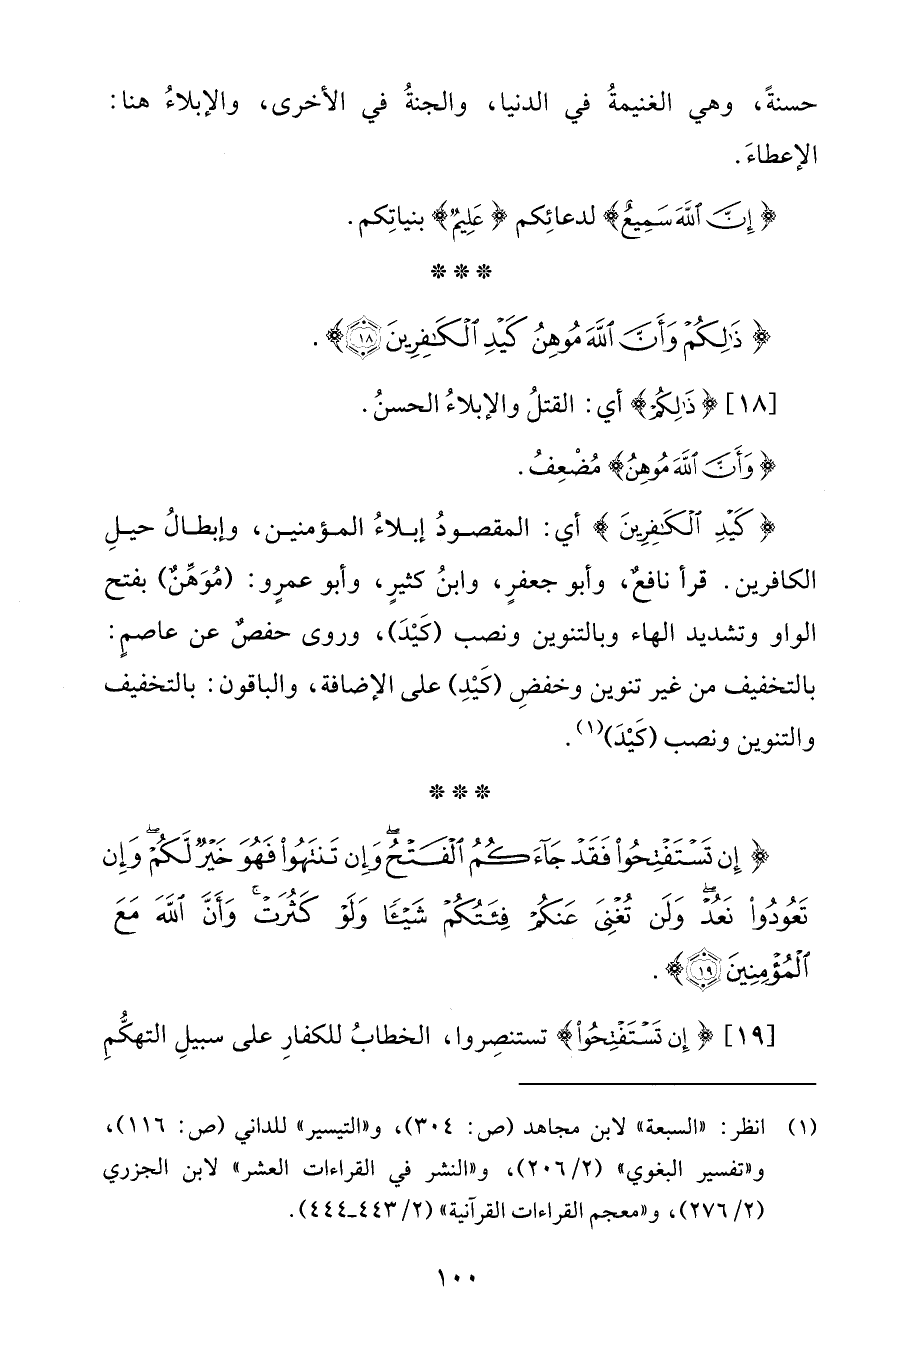 حسنةً، وهي الغنيمةُ في الدنيا، والجنةُ في الأخرى، والإبلاءُ هنا:
الإعطاءَ.
﴿إِنَّ ٱللَّهَ سَمِيعٌ﴾ لدعائِكم ﴿عَلِيمٌ﴾ بنياتِكم.
* * *
﴿ذَٰلِكُمْ وَأَنَّ ٱللَّهَ مُوهِنُ كَيْدِ ٱلْكَٰفِرِينَ ١٨﴾.
[١٨] ﴿ذَٰلِكُمْ﴾ أي: القتلُ والإبلاءُ الحسنُ.
﴿وَأَنَّ ٱللَّهَ مُوهِنُ﴾ مُضْعِفُ.
﴿كَيْدِ ٱلْكَٰفِرِينَ﴾ أي: المقصودُ إبلاءُ المؤمنين، وإبطالُ حيلِ
الكافرين. قرأ نافعٌ، وأبو جعفرٍ، وابنُ كثيرٍ، وأبو عمرٍو: (مُوَهِّنٌ) بفتح
الواو وتشديد الهاء وبالتنوين ونصب (كَيْدَ)، وروى حفصٌ عن عاصمٍ:
بالتخفيف من غير تنوين وخفضِ (كَيْدِ) على الإضافة، والباقون: بالتخفيف
والتنوين ونصب (كَيْدَ)(١).
* * *
﴿إِن تَسْتَفْتِحُوا۟ فَقَدْ جَآءَكُمُ ٱلْفَتْحُ ۖ وَإِن تَنتَهُوا۟ فَهُوَ خَيْرٌ لَّكُمْ ۖ وَإِن
تَعُودُوا۟ نَعُدْ ۖ وَلَن تُغْنِىَ عَنكُمْ فِئَتُكُمْ شَيْـًٔا وَلَوْ كَثُرَتْ ۚ وَأَنَّ ٱللَّهَ مَعَ
ٱلْمُؤْمِنِينَ ١٩﴾.
[١٩] ﴿إِن تَسْتَفْتِحُوا۟﴾ تستنصِروا، الخطابُ للكفارِ على سبيلِ التهكُّمِ
(١) انظر: «السبعة» لابن مجاهد (ص: ٣٠٤)، و«التيسير» للداني (ص: ١١٦)،
و«تفسير البغوي» (٢/ ٢٠٦)، و«النشر في القراءات العشر» لابن الجزري
(٢/ ٢٧٦)، و«معجم القراءات القرآنية» (٢/ ٤٤٣-٤٤٤).
١٠٠